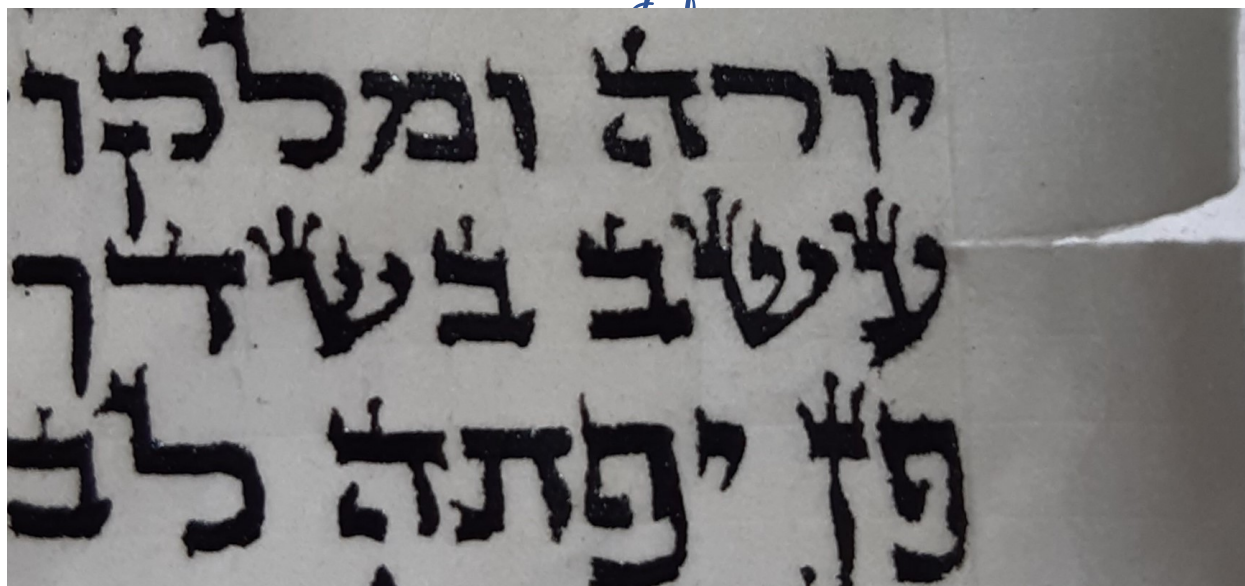 יורה ומלקו
עשב בשדך
פן יפתה לב